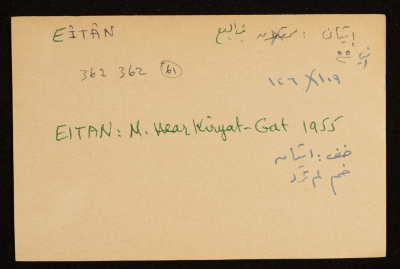 EÎTÂN
إيتان :
362 362 61
١٤٦ X ١٠٩
EITAN: M. Near Kiryat-Gat 1955
خف : ايتان
خم لم ترد